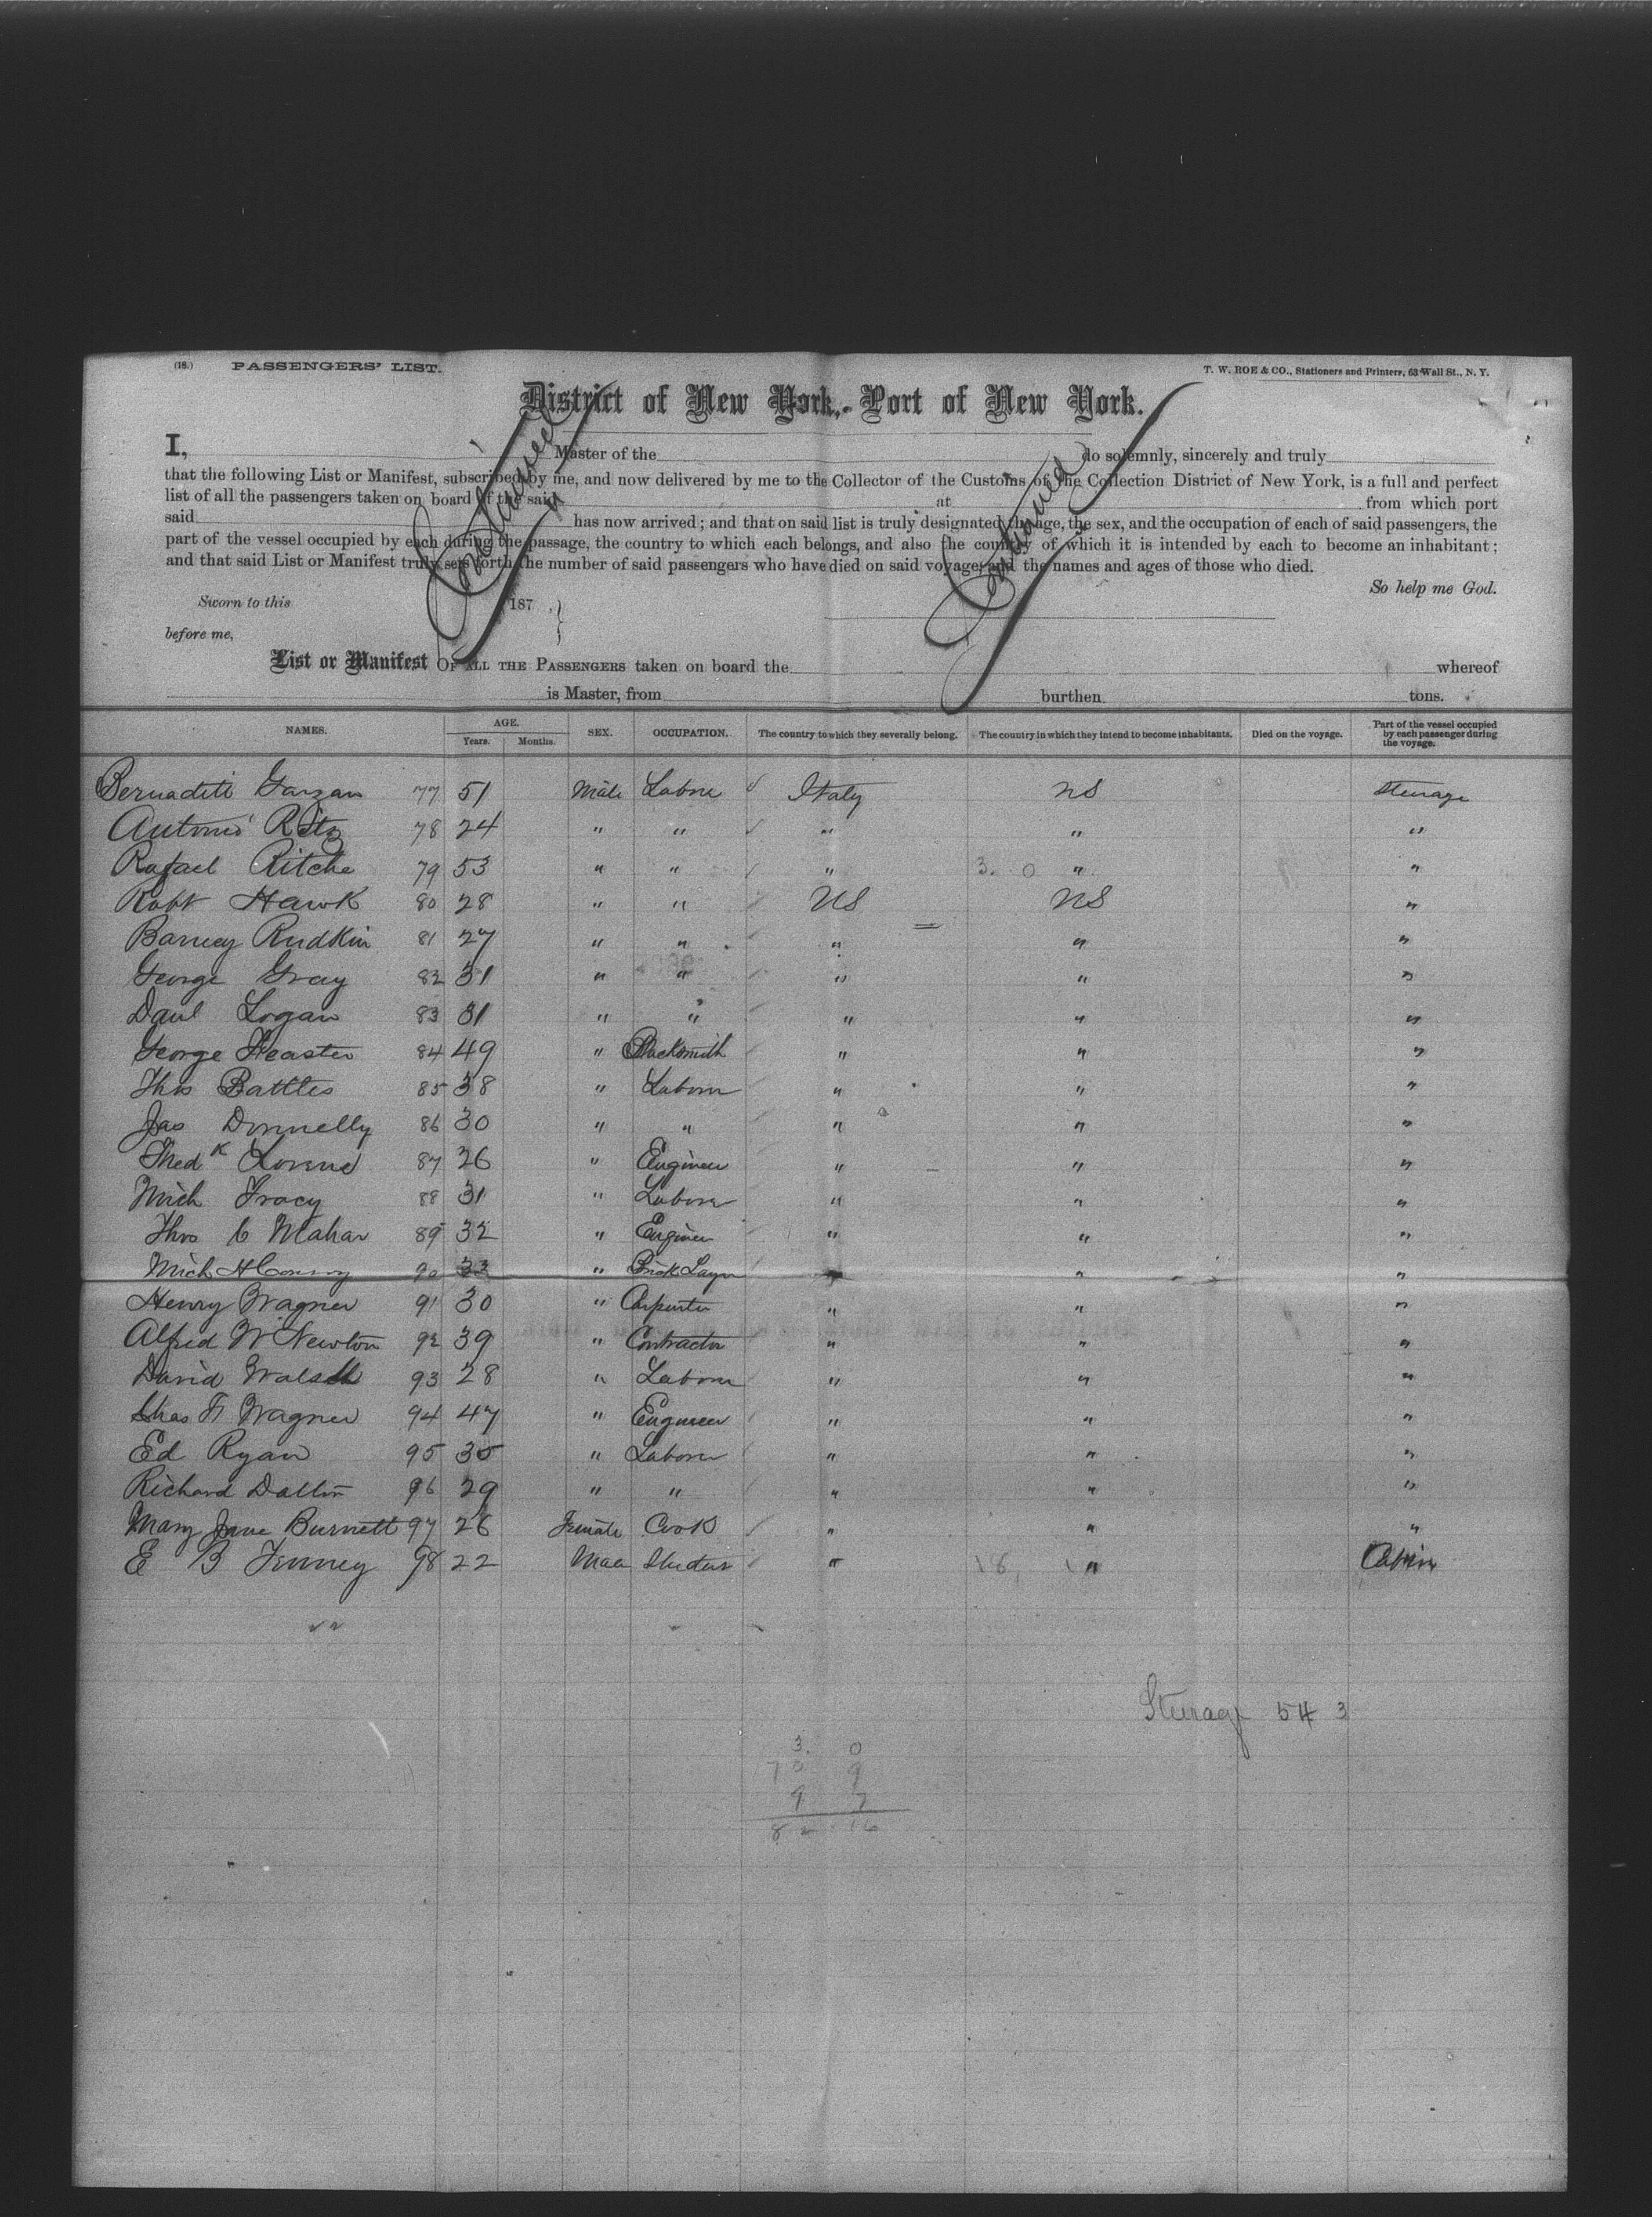 (18.) PASSENGERS' LIST. T. W. ROE & CO., Stationers and Printers, 63 Wall St., N. Y.
District of New York,- Port of New York.
I, Master of the do solemnly, sincerely and truly
that the following List or Manifest, subscribed by me, and now delivered by me to the Collector of the Customs of the Collection District of New York, is a full and perfect
list of all the passengers taken on board of the said at from which port
said has now arrived; and that on said list is truly designated the age, the sex, and the occupation of each of said passengers, the
part of the vessel occupied by each during the passage, the country to which each belongs, and also the country of which it is intended by each to become an inhabitant;
and that said List or Manifest truly sets forth the number of said passengers who have died on said voyage, and the names and ages of those who died.
So help me God.
Continued
Continued
Sworn to this 187 ,
before me,
List or Manifest OF ALL THE PASSENGERS taken on board the whereof
is Master, from burthen tons.
NAMES. AGE. Years. Months. SEX. OCCUPATION. The country to which they severally belong. The country in which they intend to become inhabitants. Died on the voyage. Part of the vessel occupied by each passenger during the voyage.
77 51 Male Italy US Steerage
78 24 " " " " "
Rafael Ritche 79 53 " " " 3. 0 " "
Robt Hawk 80 28 " " US US "
Barney Rudkin 81 27 " " " " "
George Gray 82 31 " " " " "
Danl Logan 83 31 " " " " "
George Feaster 84 49 " Blacksmith " " "
Thos Battles 85 38 " Laborer " " "
Jas Donnelly 86 30 " " " " "
87 26 " Engineer " " "
Mich Tracy 88 31 " Laborer " " "
Thos C Mahar 89 32 " Engineer " " "
Mich H Conroy 90 33 " Brick Layer " " "
Henry Wagner 91 30 " Carpenter " " "
Alfred W Newton 92 39 " Contractor " " "
David Walsh 93 28 " Laborer " " "
Chas F Wagner 94 47 " Engineer " " "
Ed Ryan 95 35 " Laborer " " "
Richard Dalton 96 29 " " " " "
Mary Jane Burnett 97 26 Female Cook " " "
E B Tenney 98 22 Male Student " " Cabin
Steerage 54 3
3. 0
70 9
9 7
82 16